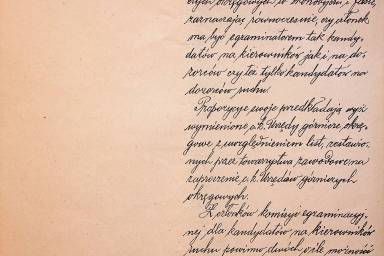 nych okręgowych w monowymi i fasie,
zaznaczając równocześnie, czy członek
ma być egzaminatorem tak kandy-
datów na kierowników jak i na do-
zorców czy też tylko kandydatów na
dozorców ruchu.
Propozycye swoje przedkładają wyż
wymienione c.k. Urzędy górnicze okrę-
gowe z uwzględnieniem list, zestawio-
nych przez towarzystwa zawodowe na
zaproszenie c.k. Urzędów górniczych
okręgowych.
Z członków komisyi egzaminacyj-
nej dla kandydatów na kierowników
ruchu powinno dwóch o ile możności